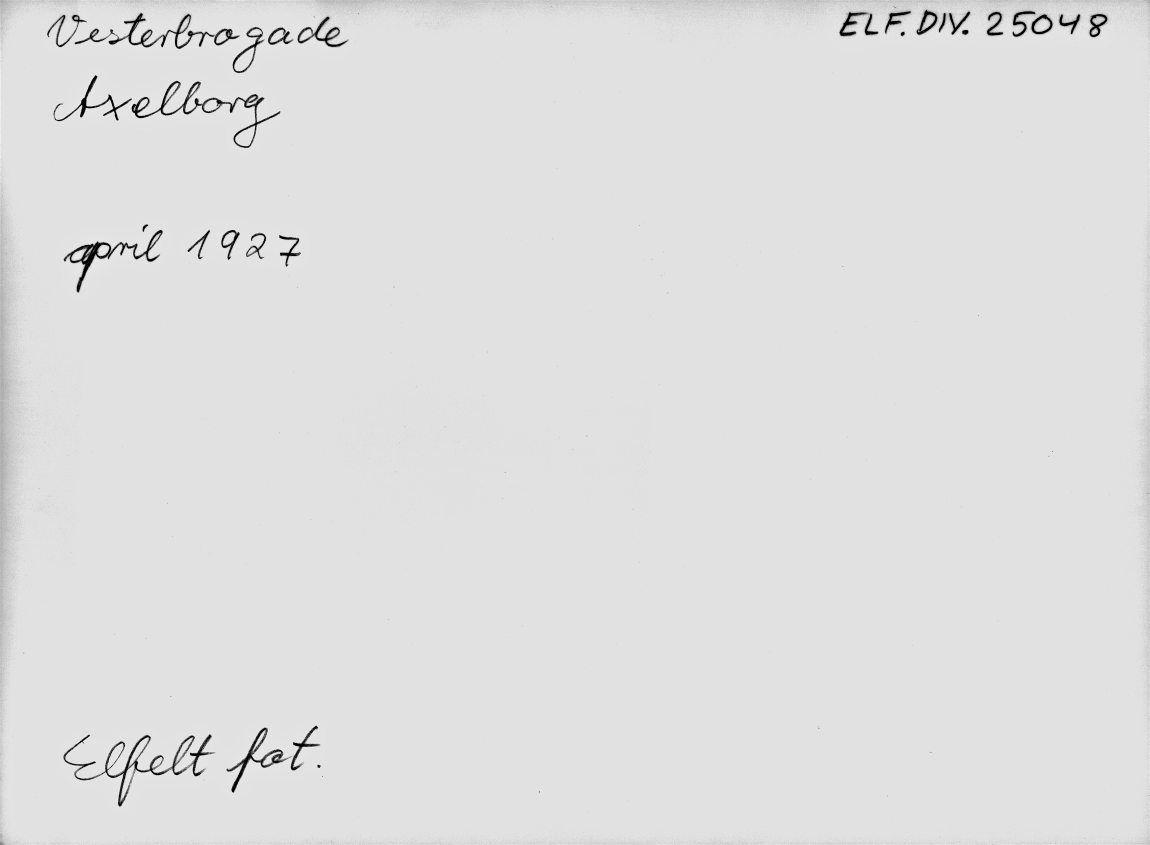 Vesterbrogade
ELF. DIV. 25048
Axelborg
april 1927
Elfelt fot.